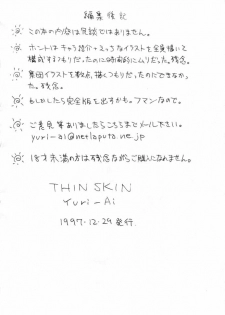 編集後記
この本の内容は冗談ではありません。
ホントはキャラ設計+ミックなイラストを全員描いて
構成するつもりだったのに時間的にムリだった。残念。
裏面イラストを数点、描くつもりだったのできなかっ
た。残念。
もしかしたら完全版を出すかも。フマンなので。
ご意見等ありましたらこちらまでメール下さい。
yuri-ai@netlaputa.ne.jp
18才未満の方は残念ながらご購入になれません。
THIN SKIN
Yuri-Ai
1997.12.29 発行